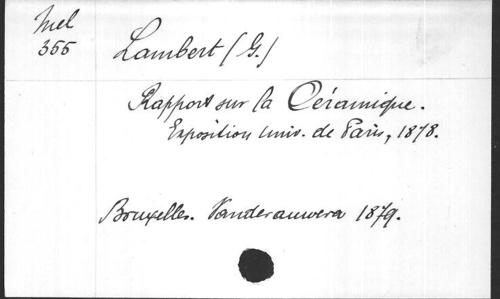 Mel
355
Lambert (G.)
Rapport sur la Céramique.
Exposition univ. de Paris, 1878.
Bruxelles. Vanderauwera 1879.